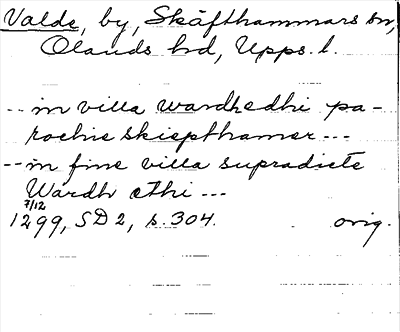 Valde, by, Skäfthammars sn,
Olands hd, Upps. l.
-- in villa wardhedhi pa-
rochie skiepthamer ---
-- in fine villa supradicte
Wardh ethi ---
7/12
1299, SD 2, s. 304. orig.